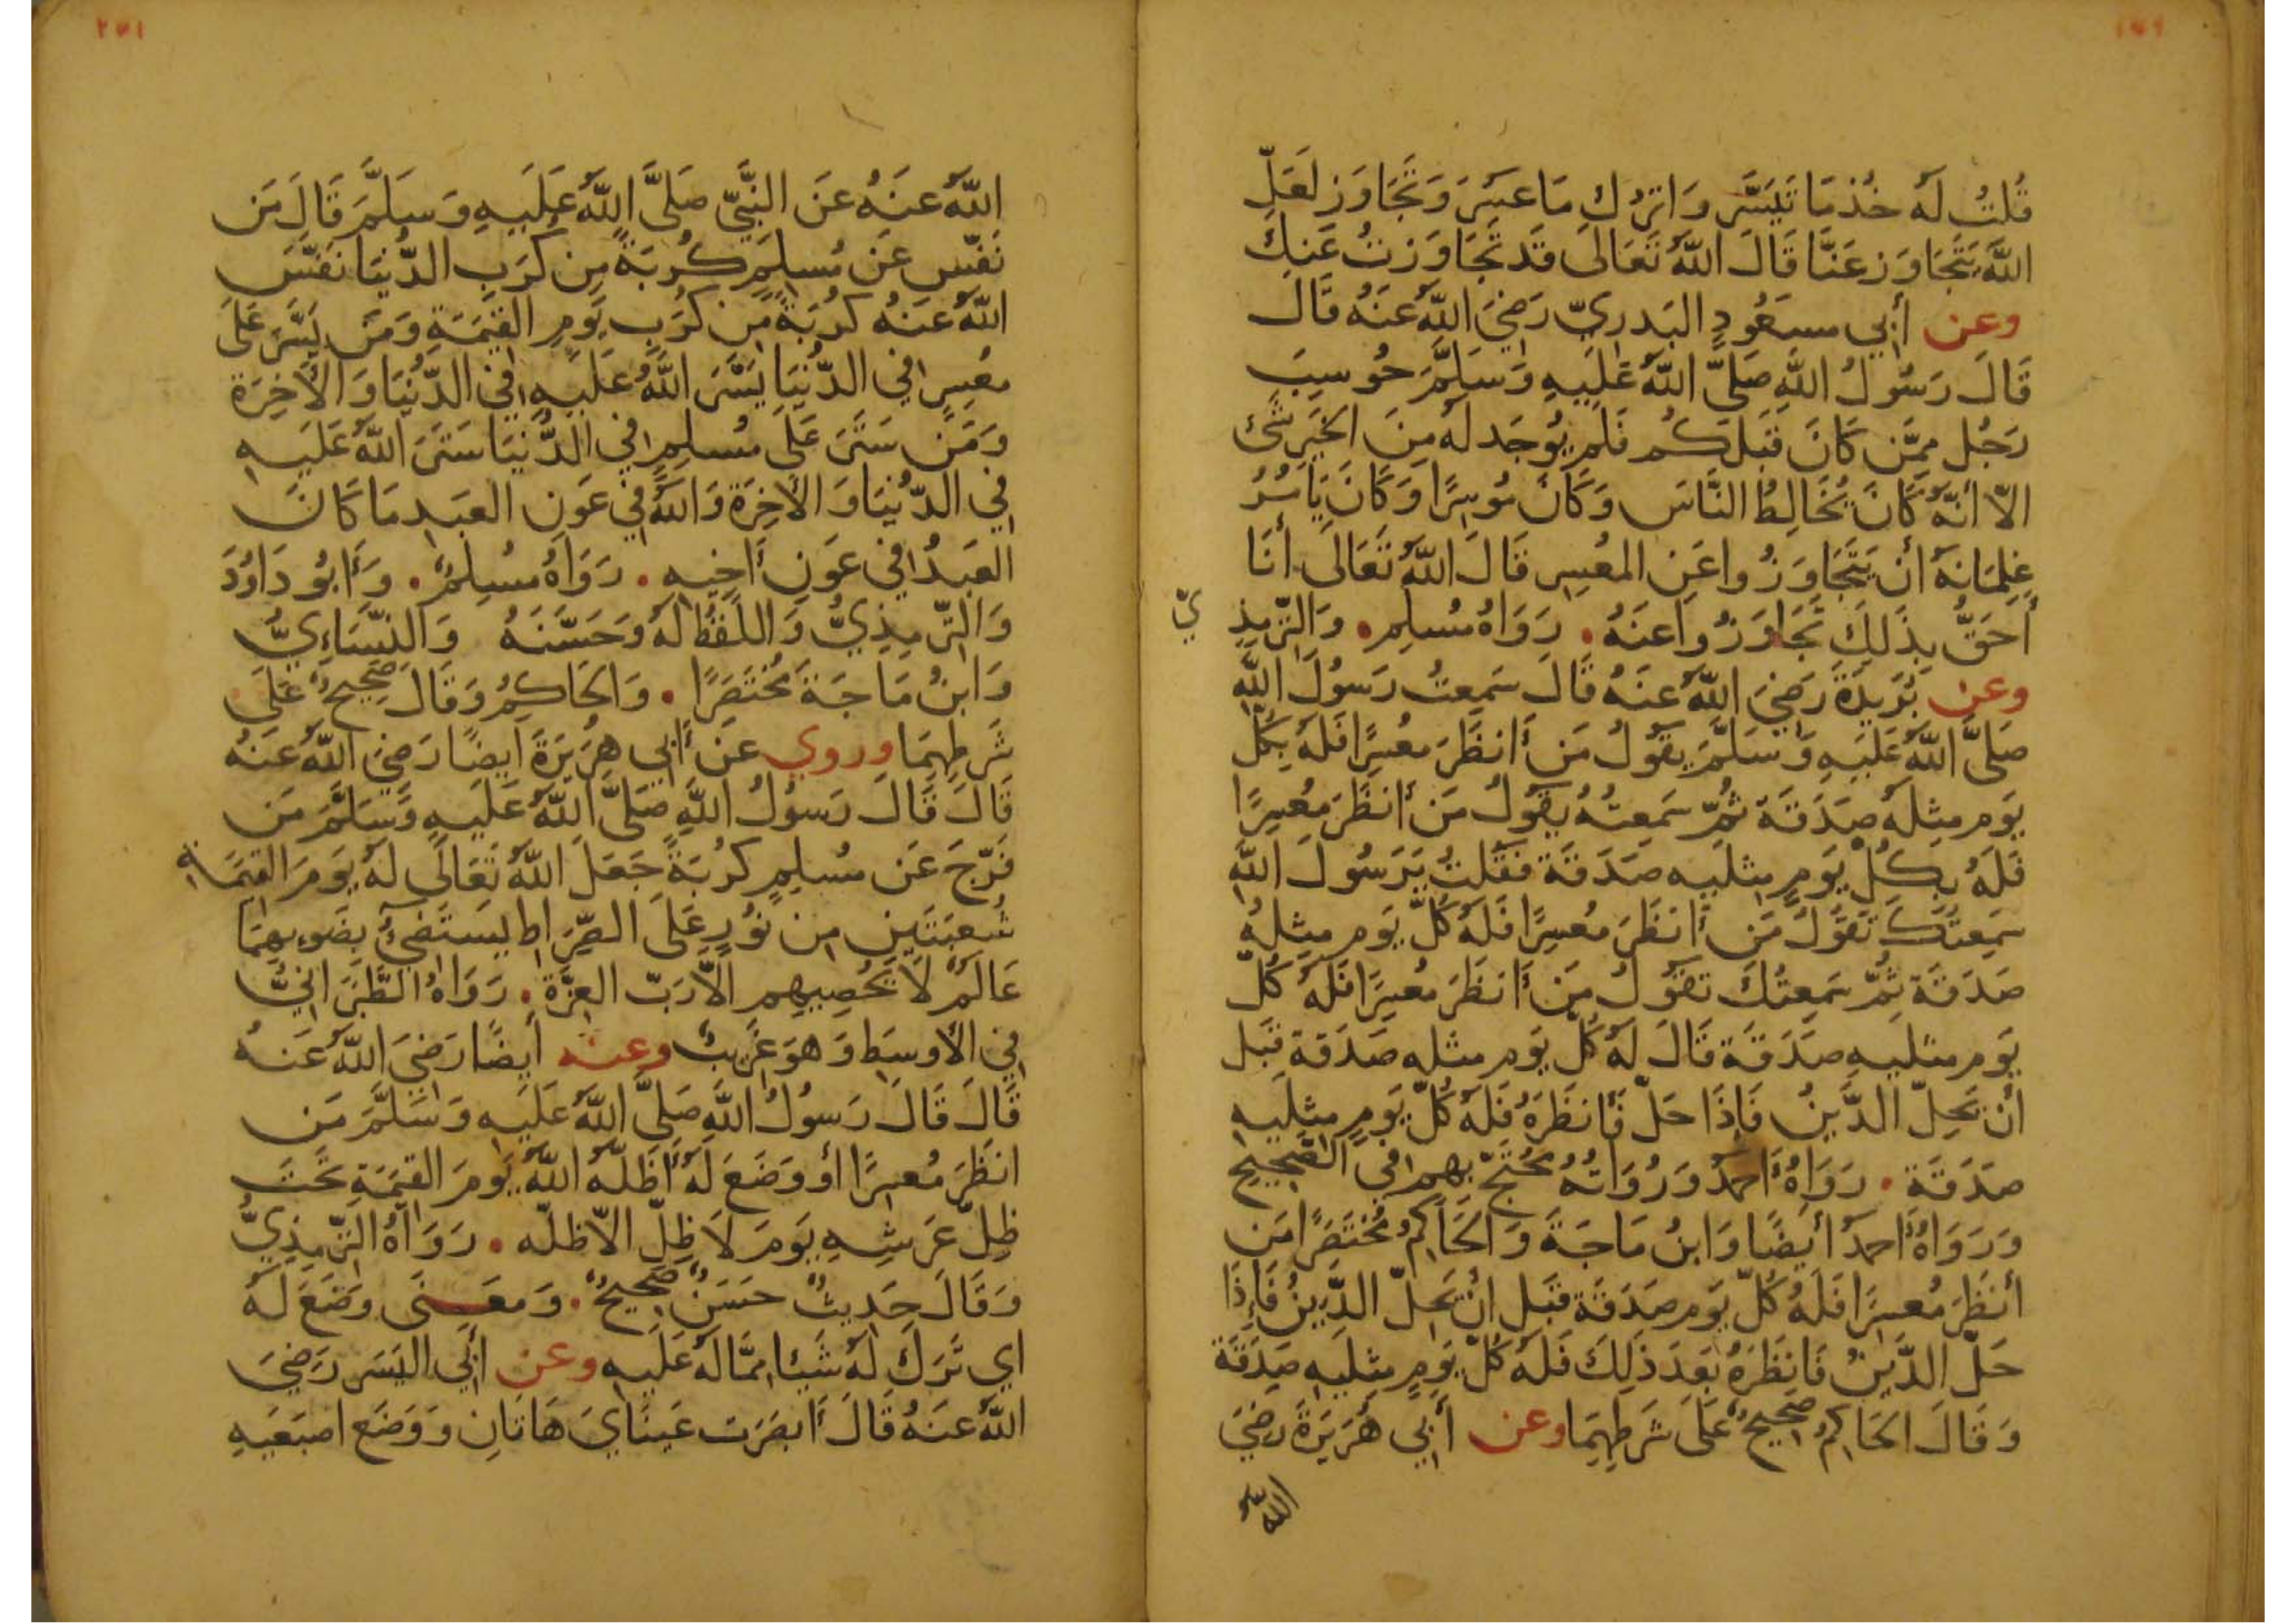 قُلتُ لَه خُذ مَا تَيَسَّرَ وَاترُك مَا عَسِرَ وَتَجَاوَز لَعَلّ
اللَّهَ يَتَجَاوَز عَنَّا قَالَ اللَّهُ تَعَالَى قَد تَجَاوَزتُ عَنكَ
وعن أَبِي مسعُودٍ البَدرِيّ رَضِيَ اللَّهُ عَنهُ قَالَ
قَالَ رَسُولُ اللَّهِ صَلَّى اللَّهُ عَلَيهِ وَسَلَّمَ حُوسِبَ
رَجُل مِمَّن كَانَ قَبلَكُم فَلَم يُوجَد لَه مِنَ الخَيرِ شَئ
الاّ أنَّهُ كَانَ يُخَالِطُ النَّاسَ وَكَانَ مُوسِرًا وَكَانَ يَامُرُ
غِلمَانَهُ أن يَتَجَاوَزُوا عَنِ المعُسِرِ قَالَ اللَّهُ تَعَالَى أنَا
أحَقُّ بِذَلِكَ تَجَاوَزُوا عَنهُ . رَوَاهُ مُسلِم . وَالتِّرمِذِ
يّ
وعن بُرَيدَةَ رَضِيَ اللَّهُ عَنهُ قَالَ سَمِعتُ رَسُولَ اللَّهِ
صَلَّى اللَّهُ عَلَيهِ وَسَلَّمَ يَقُولُ مَن أَنظَرَ مُعسِرًا فَلَهُ بِكُلّ
يَوم مِثلِهُ صَدَقَة ثُمّ سَمِعتُهُ يَقُولُ مَن أنظَرَ مُعسِرًا
فَلَهُ بِكُلّ يَومٍ مِثلَيهِ صَدَقَة فَقُلتُ يَرَسُولَ اللَّهِ
سَمِعتُكَ تَقُولُ مَن أَنظَرَ مُعسِرًا فَلَهُ كُلّ يَوم مِثلِهُ
صَدَقَة ثُمّ سَمِعتُكَ تَقُولُ مَن أَنظَرَ مُعسِرًا فَلَهُ كُلّ
يَوم مثلَيهِ صَدَقَة قَالَ لَهُ كُلّ يَوم مثله صَدَقَة قَبل
أن يَحِلّ الدَّينُ فَإذَا حَلّ فَأنظَرَهُ فَلَهُ كُلّ يَومٍ مِثلَيهِ
صَدَقَة . رَوَاهُ أَحمدُ وَرُوَاتُهُ مُحتَجّ بِهِم فِي الصَّحِيحِ
وَرَوَاهُ أَحمدُ أيضًا وَابنُ مَاجَةَ وَالحَاكِمُ مُختَصَرًا مَن
أنظَرَ مُعسِرًا فَلَهُ كُلّ يَوم صَدَقَة قَبل ان يَحِلّ الدَّينُ فَإِذَا
حَلّ الدَّينُ فَانظَرَهُ بَعدَ ذَلِكَ فَلَهُ كُلّ يَومٍ مثلَيهِ صَدَقَة
وَقَالَ الحَاكِمُ صَحِيحٌ عَلَى شَرطِهِمَا وعن أَبِي هُرَيرَةَ رضِيَ
اللَّهُ
٢٧١
اللَّهُ عَنهُ عَنَ النَّبِيّ صَلَّى اللَّهُ عَلَيهِ وَسَلَّمَ قَالَ مَن
نَفّس عَن مُسلِمٍ كُربَةً مِن كُرَبِ الدُّنيَا نَفَّسَ
اللَّهُ عَنهُ كُربَةً مِن كُرَبِ يَومِ القِيمَةِ وَمَن يَسَّرَ عَلَى
مُعسِرٍ فِي الدُّنيَا يَسَّرَ اللَّهُ عَلَيهِ فِي الدُّنيَا وَالأخِرَة
وَمَن سَتَرَ عَلَى مُسلِمٍ فِي الدُّنيَا سَتَرَ اللَّهُ عَلَيهِ
فِي الدُّنيَا وَالأخِرَة وَاللَّهُ فِي عَونِ العَبدِ مَا كَانَ
العَبدُ فِي عَونِ أَخِيهِ . رَوَاهُ مُسلِمٌ . وَأَبُو دَاوُدَ
وَالتِّرمِذِيُّ وَاللَّفظُ لَهُ وَحَسَّنَهُ وَالنَّسَاءِيُّ
وَابنُ مَاجَةَ مُختَصَرًا . وَالحَاكِمُ وَقَالَ صَحِيحٌ عَلَى
شَرطِهِمَا وروي عَن أَبِي هُرَيرَةَ ايضًا رَضِيَ اللَّهُ عَنهُ
قَالَ قَالَ رَسُولُ اللَّهِ صَلَّى اللَّهُ عَلَيهِ وَسَلَّمَ مَن
فَرّجَ عَن مُسلِمٍ كُربَةً جَعَلَ اللَّهُ تَعَالَى لَهُ يَومَ القِيَمَةِ
شُعبَتَينِ مِن نُورٍ عَلَى الصِّرَاطِ يَستَضِئُ بِضَوءِهِمَا
عَالَمٌ لَا يُحصِيهِم الاّ رَبّ العِزَّةِ . رَوَاهُ الطَّبَرَانِيُّ
فِي الأوسَطِ وَهوَ غَرِيبٌ وعنه أيضًا رَضِيَ اللَّهُ عَنهُ
قَالَ قَالَ رَسُولُ اللَّهِ صَلَّى اللَّهُ عَلَيهِ وَسَلَّمَ مَن
انظَرَ مُعسِرًا أو وَضَعَ لَهُ أَظَلّهُ اللَّهُ يَومَ القِيمَةِ تَحتَ
ظِلّ عَرشِهِ يَومَ لَا ظِلّ الاّ ظلّه . رَوَاهُ التِّرمِذِيُّ
وَقَالَ حَدِيثٌ حَسَنٌ صَحِيحٌ . وَمَعنَى وَضَعَ لَهُ
اي تَرَكَ لَهُ شَيئا مِمَّا لَهُ عَلَيهِ وعن أَبِي اليَسَرِ رَضِيَ
اللَّهُ عَنهُ قَالَ أَبصَرَت عَينَايَ هَاتَانِ وَوَضَع اصبَعَيهِ